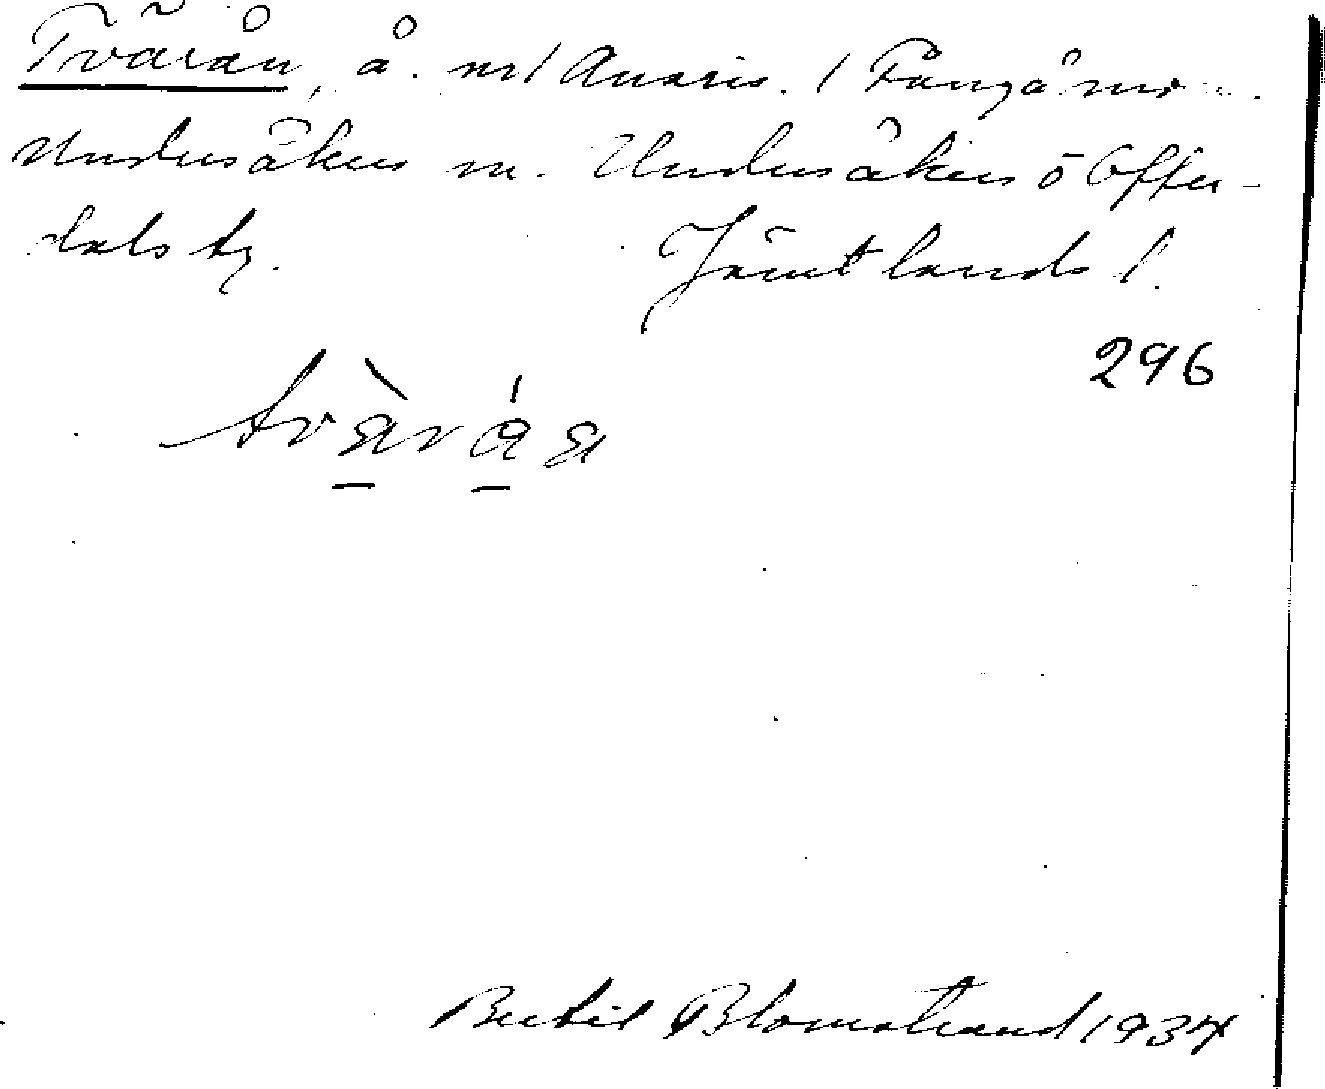 Tvärån, å. nr/ Anaris. / Fångåmo
Undersåkers sn. Undersåkers o Offer-
dals tg. Jämtlands l.
296
Bertil Blomstrand 1934